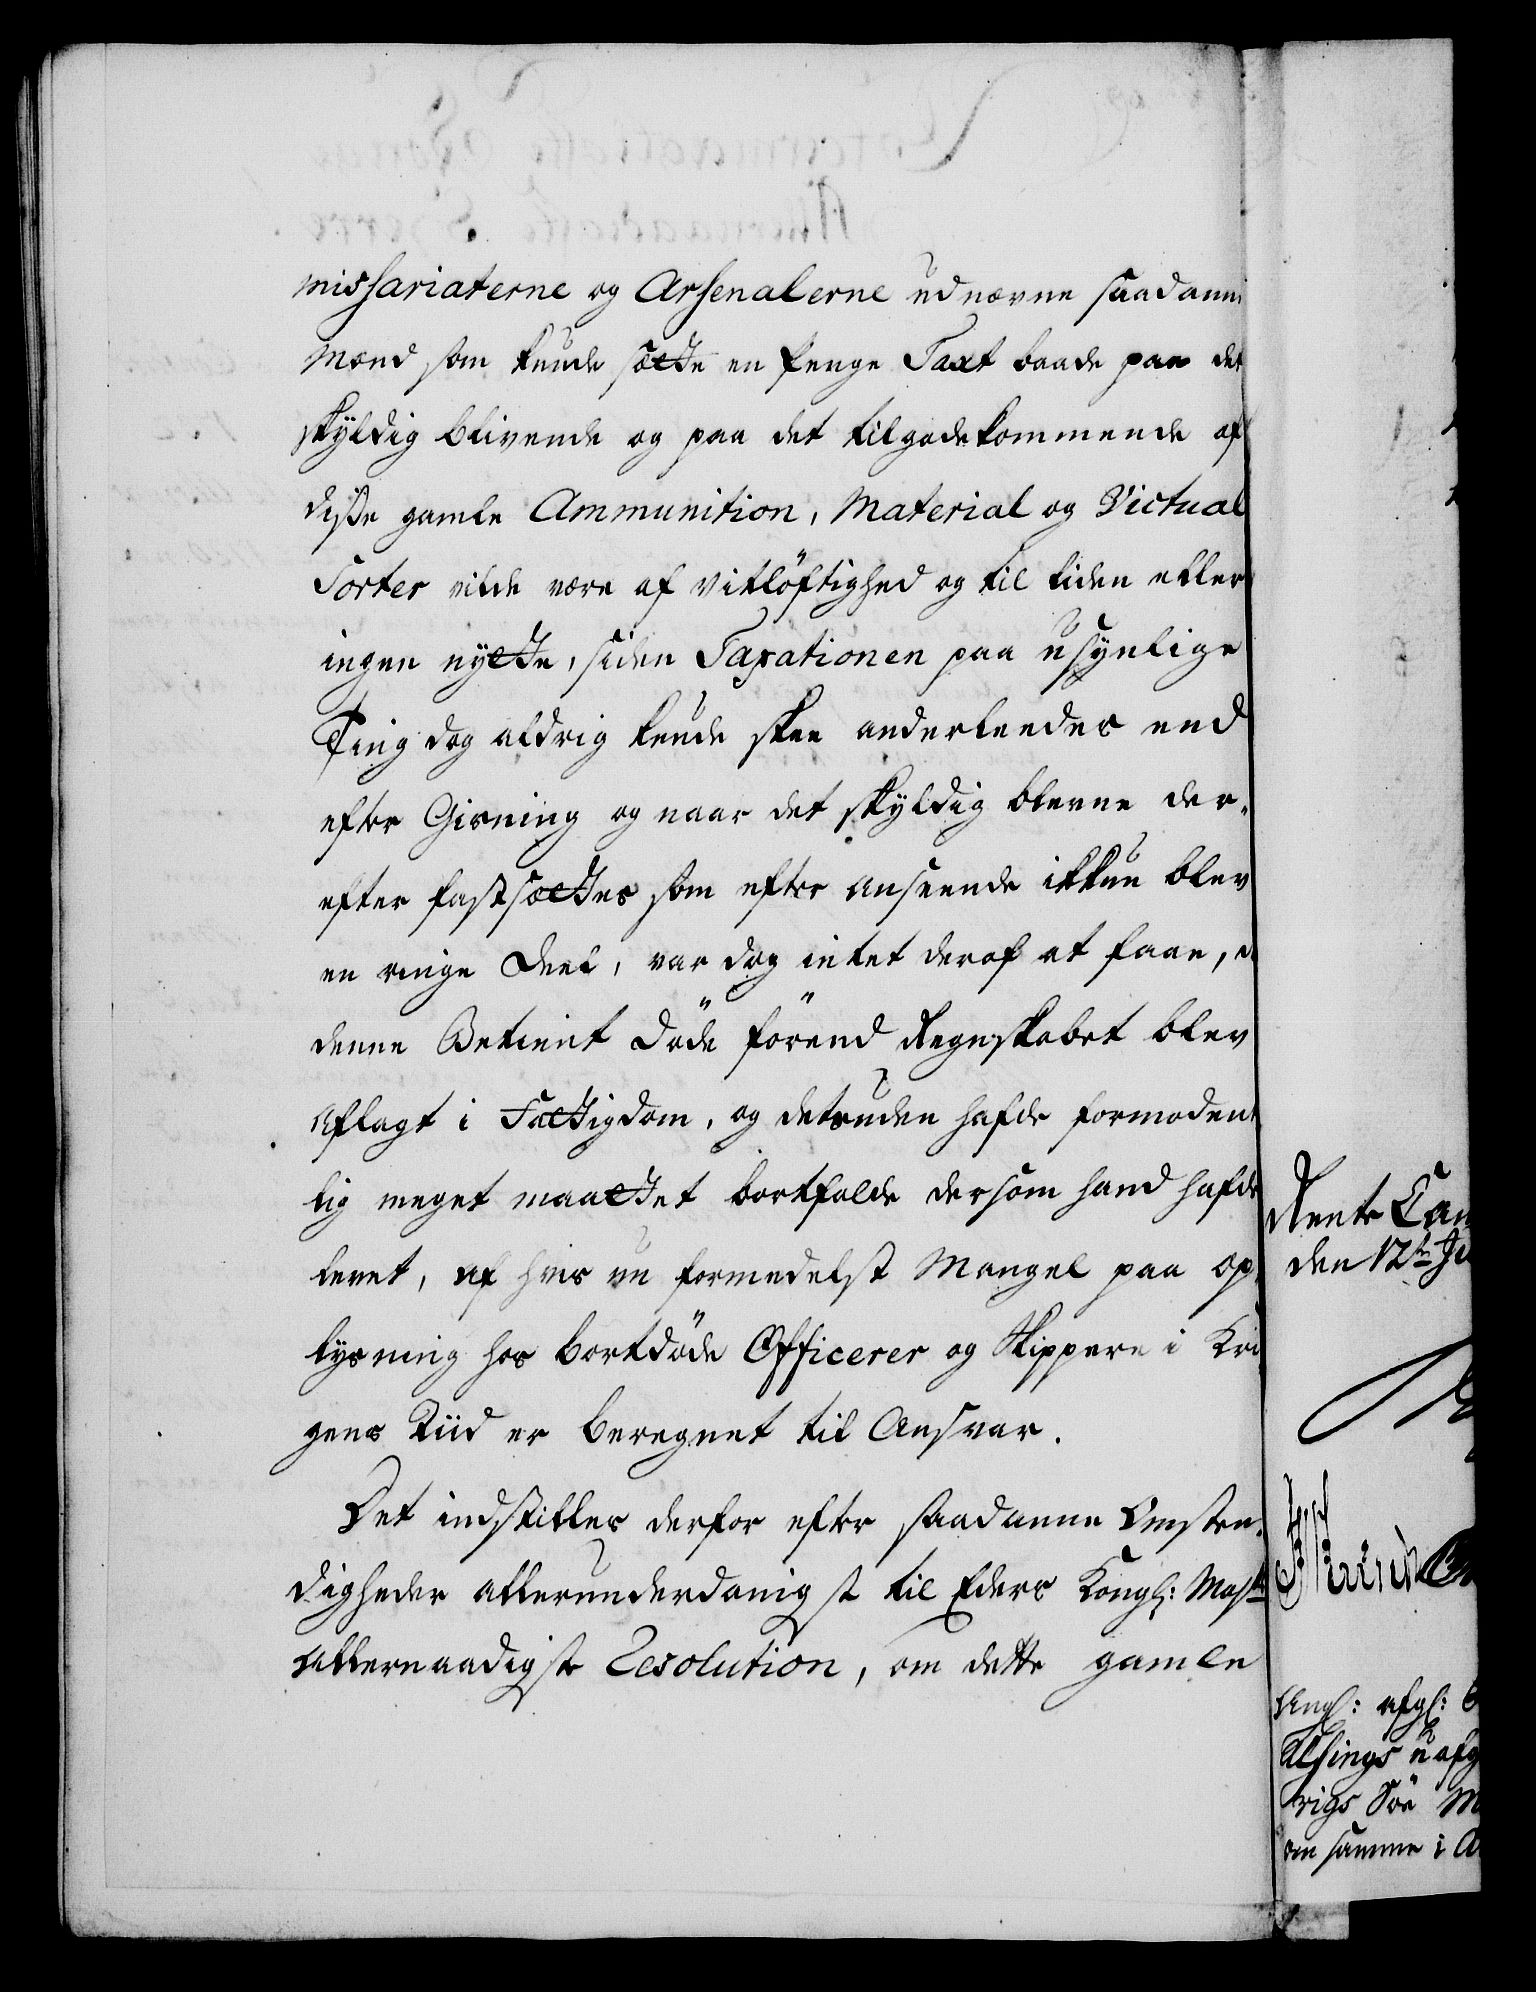 missariaterne og Arsenalerne udnævne saadanne
Mænd som kunde sætte en Penge Taxt baade paa det
skyldig blivende og paa det tilgodekommende af
disse gamle Ammunition, Material og Victual
Sorter vilde være af vitløftighed og til liden eller
ingen nytte, siden Taxationen paa usynlige
Ting dog aldrig kunde skee anderleedes end
efter Gisning og naar det skyldig blevne der-
efter fastsættes som efter anseende ikkun blev
en ringe Deel, var dog intet deraf at faae,
denne Betient døde førend Regnskabet blev
Aflagt i Fattigdom, og desuden hafde formodent
lig meget maattet bortfalde dersom hand hafde
levet, af hvis nu formedelst Mangel paa op-
lysning hos bortdøde Officerer og Skippere i Kri
gens Tiid er beregnet til Ansvar.
Det indstilles derfor efter saadanne Omsten-
digheder allerunderdanigst til Eders Kongl: Mayts
Allernaadigste Resolution, om dette gamle
Rente Cam
den 12te
Ang: afgl:
rigs Søe M
samme i A